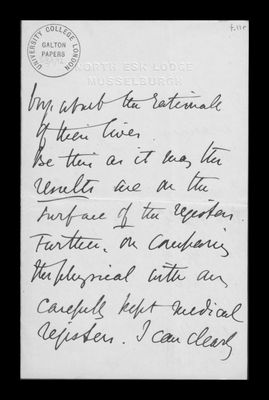 f.11r
UNIVERSITY COLLEGE LONDON
GALTON PAPERS
NORTH ESK LODGE
MUSSELBURGH
about the rationale
of their lives.
Be this as it may the
results are on the
surface of the registers.
Further, on comparing
the physical with any
carefully kept medical
registers. I can clearly